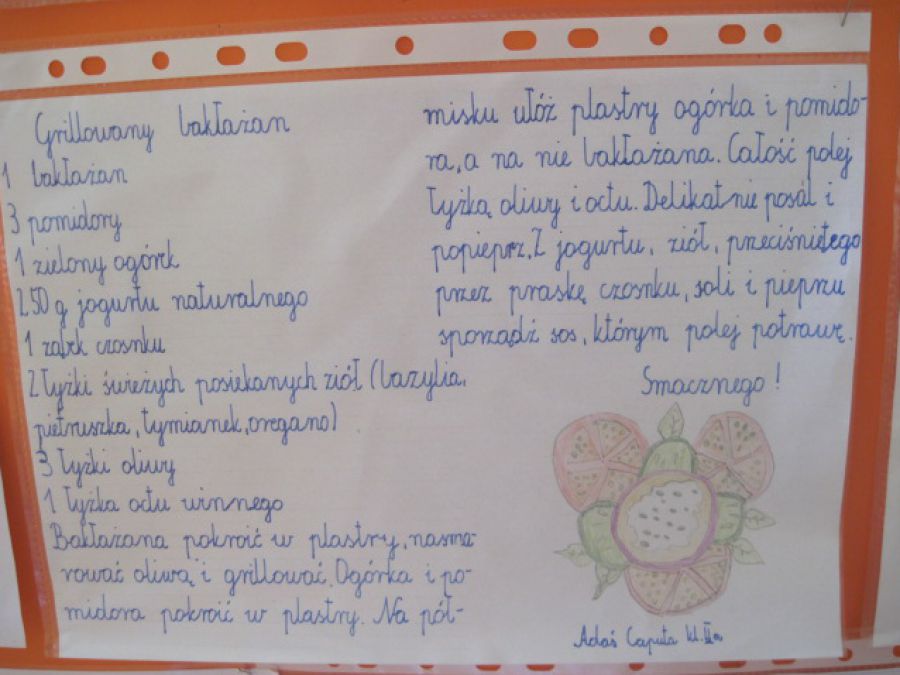 Grillowany bakłażan
1 bakłażan
3 pomidory
1 zielony ogórek
250 g jogurtu naturalnego
1 ząbek czosnku
2 łyżki świeżych posiekanych ziół (bazylia,
pietruszka, tymianek, oregano)
3 łyżki oliwy
1 łyżka octu winnego
Bakłażana pokroić w plastry, nasma-
rować oliwą i grillować. Ogórka i po-
midora pokroić w plastry. Na pół-
misku ułóż plastry ogórka i pomido-
ra, a na nie bakłażana. Całość polej
łyżką oliwy i octu. Delikatnie posól i
popieprz. Z jogurtu, ziół, przeciśniętego
przez praskę czosnku, soli i pieprzu
sporządź sos, którym polej potrawę.
Smacznego!
Adaś Caputa kl. IIa